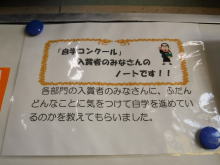 「自学コンクール」
入賞者のみなさんの
ノートです！！
各部門の入賞者のみなさんに、ふだん
どんなことに気をつけて自学を進めてい
るのかを教えてもらいました。